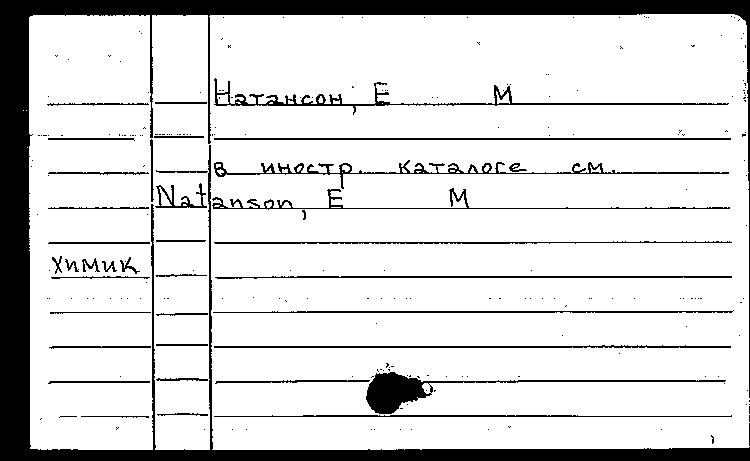 Натансон, Е М
в иностр. каталоге см.
Natanson, E M
химик